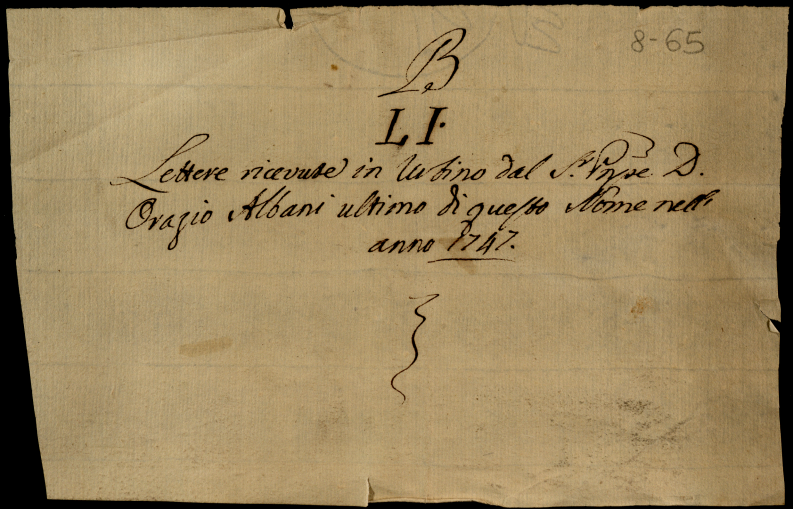 8-65
B
LI.
Lettere ricevute in Urbino dal Sr. Pnpe. D.
Orazio Albani ultimo di questo Nome nell'
anno 1747.